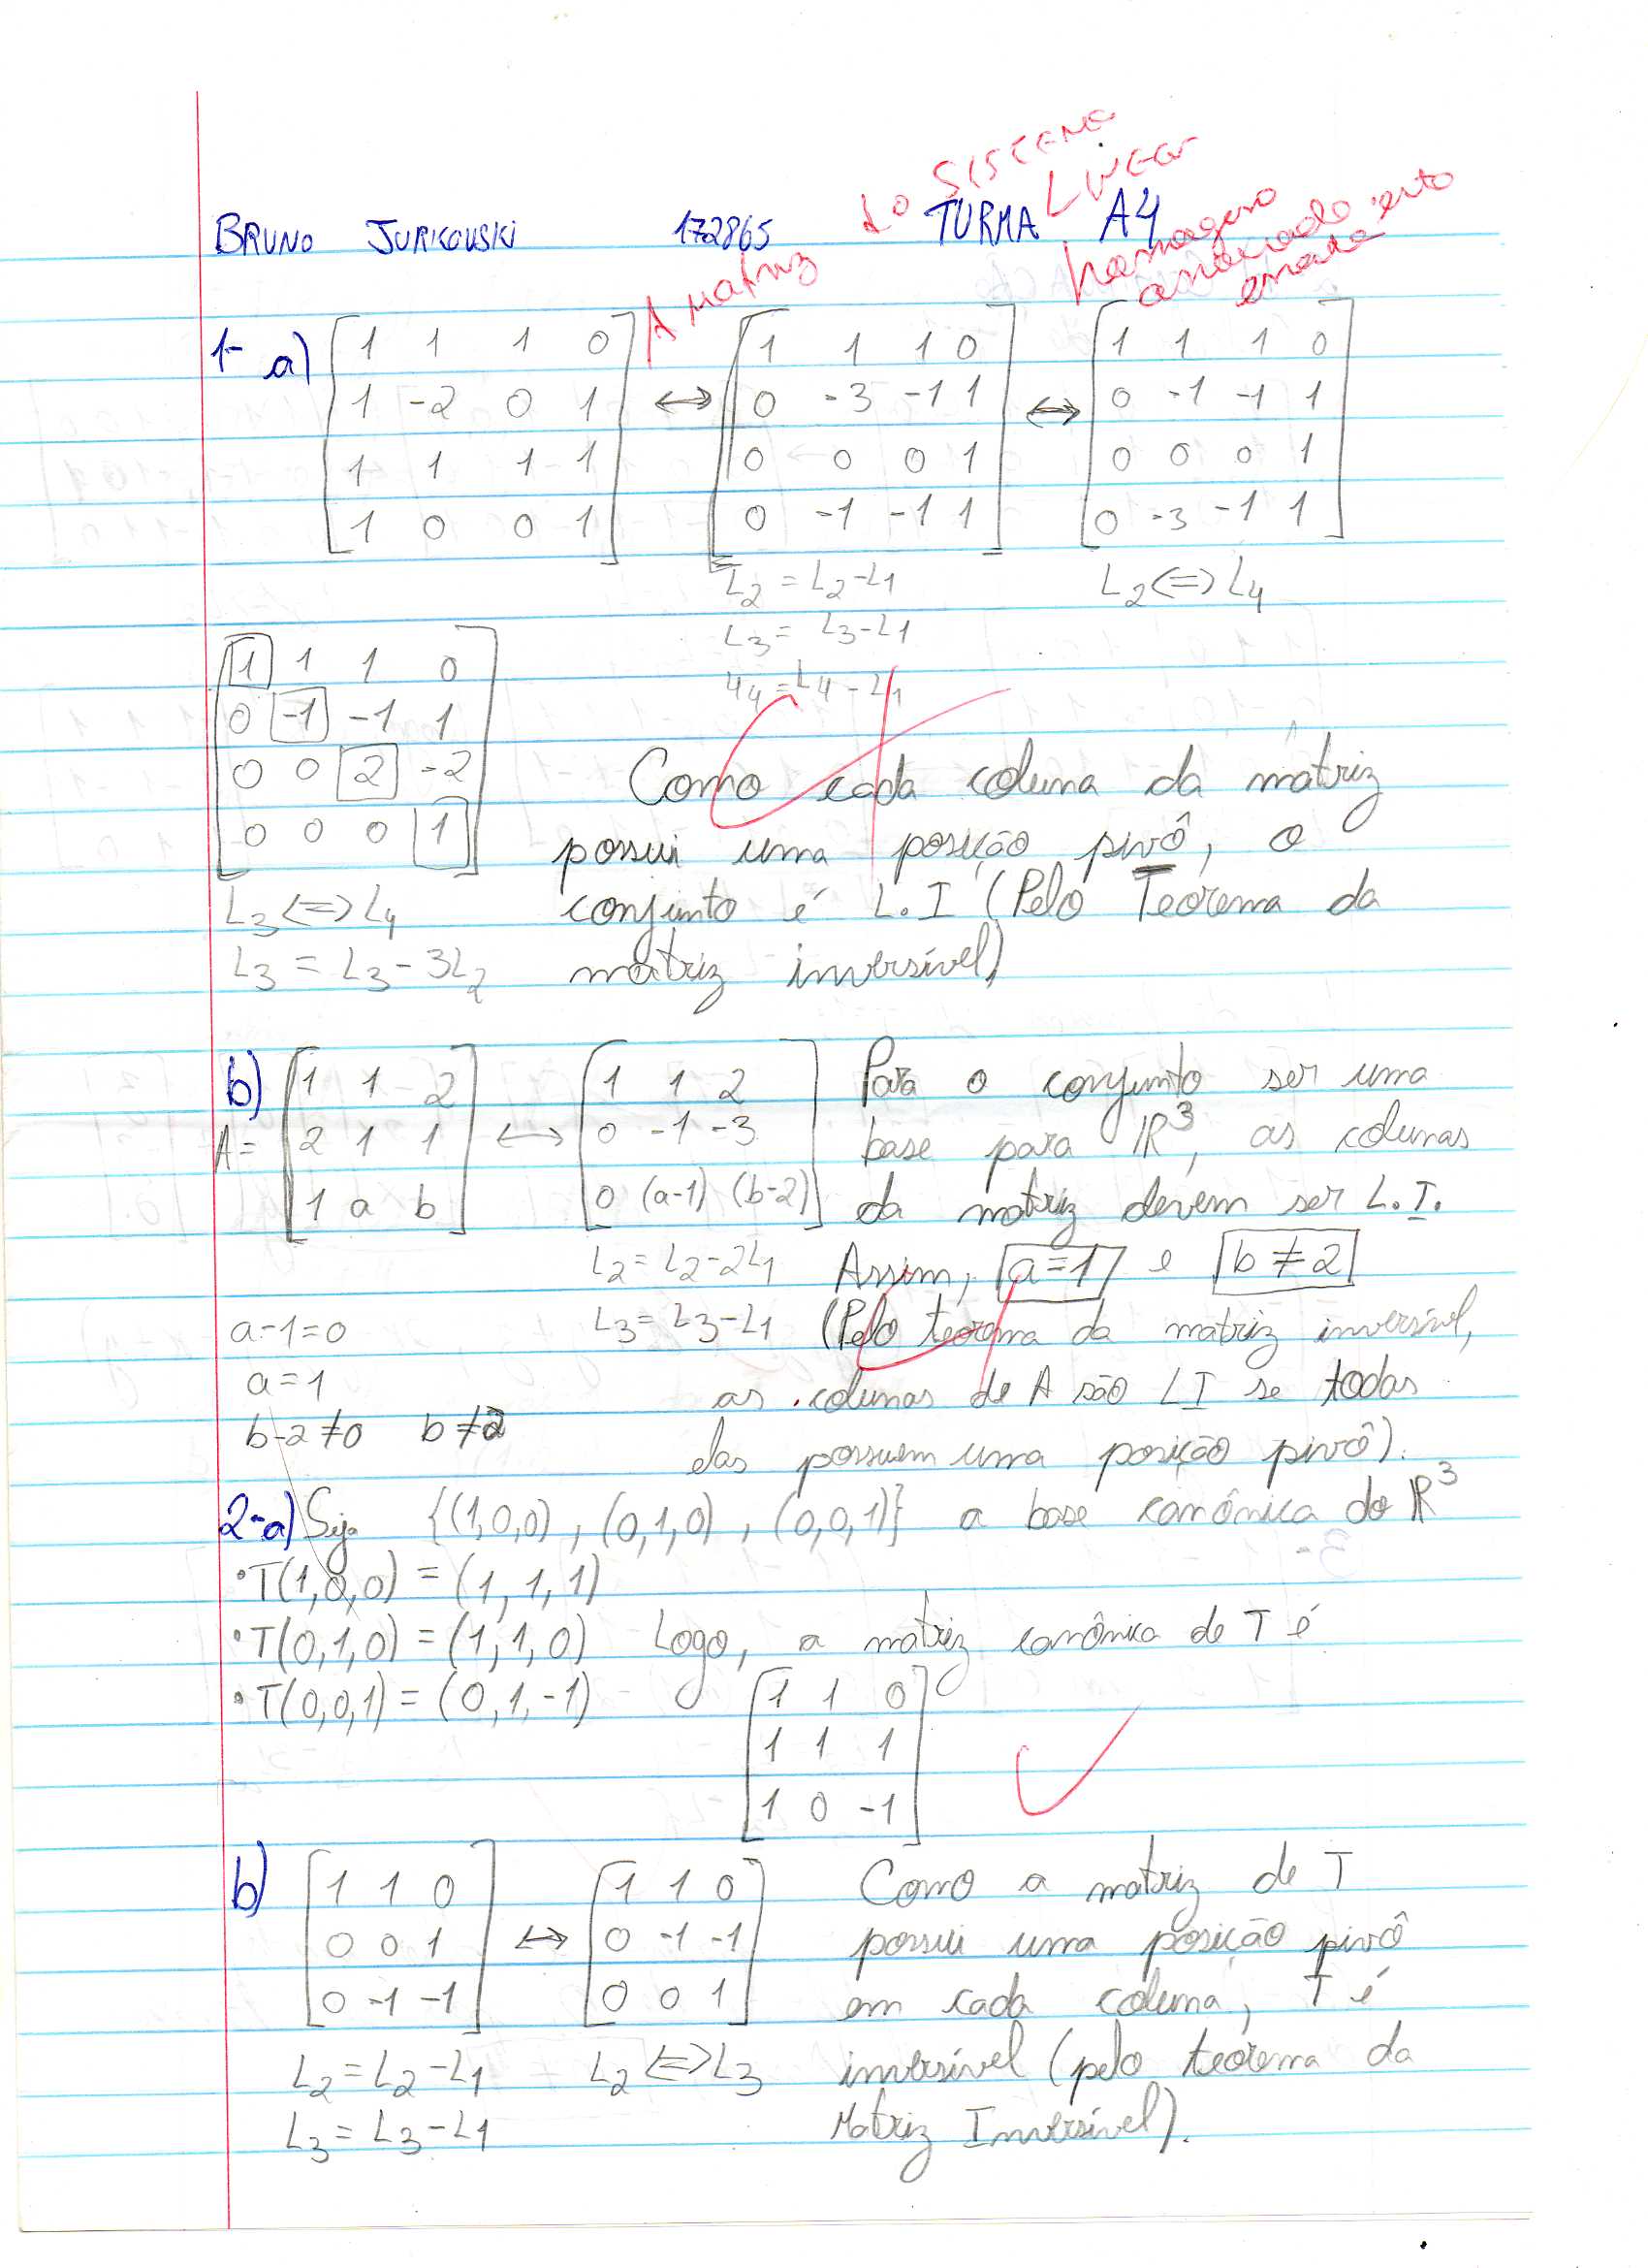 A matriz do SISTEMA
LINEAR
homogeneo
associado está
errada
BRUNO JURKOVSKI 172865 TURMA A4
1- a) [1 1 1 0 ↔ [1 1 1 0 ↔ [1 1 1 0
1 -2 0 1 0 -3 -1 1 0 -1 -1 1
1 1 1 1 0 0 0 1 0 0 0 1
1 0 0 1] 0 -1 -1 1] 0 -3 -1 1]
L2 = L2-L1 L2 <=> L4
L3 = L3-L1
L4 = L4-L1
[1 1 1 0
0 -1 -1 1
0 0 2 -2
0 0 0 1]
L3 <=> L4
L3 = L3-3L2
Como cada coluna da matriz
possui uma posição pivô, o
conjunto é L.I (Pelo Teorema da
matriz inversível)
b) A = [1 1 2 ↔ [1 1 2
2 1 1 0 -1 -3
1 a b] 0 (a-1) (b-2)]
L2 = L2-2L1
L3 = L3-L1
Para o conjunto ser uma
base para ℝ³, as colunas
da matriz devem ser L.I.
Assim, a=1 e b≠2
(Pelo teorema da matriz inversível,
as colunas de A são LI se todas
elas possuem uma posição pivô).
a-1=0
a=1
b-2≠0 b≠2
2-a) Seja {(1,0,0), (0,1,0), (0,0,1)} a base canônica do ℝ³
•T(1,0,0) = (1,1,1)
•T(0,1,0) = (1,1,0) Logo, a matriz canônica de T é
•T(0,0,1) = (0,1,-1)
[1 1 0
1 1 1
1 0 -1]
b) [1 1 0 ↔ [1 1 0
0 0 1 0 -1 -1
0 -1 -1] 0 0 1]
L2 = L2-L1 L2 <=> L3
L3 = L3-L1
Como a matriz de T
possui uma posição pivô
em cada coluna, T é
inversível (pelo teorema da
Matriz Inversível).